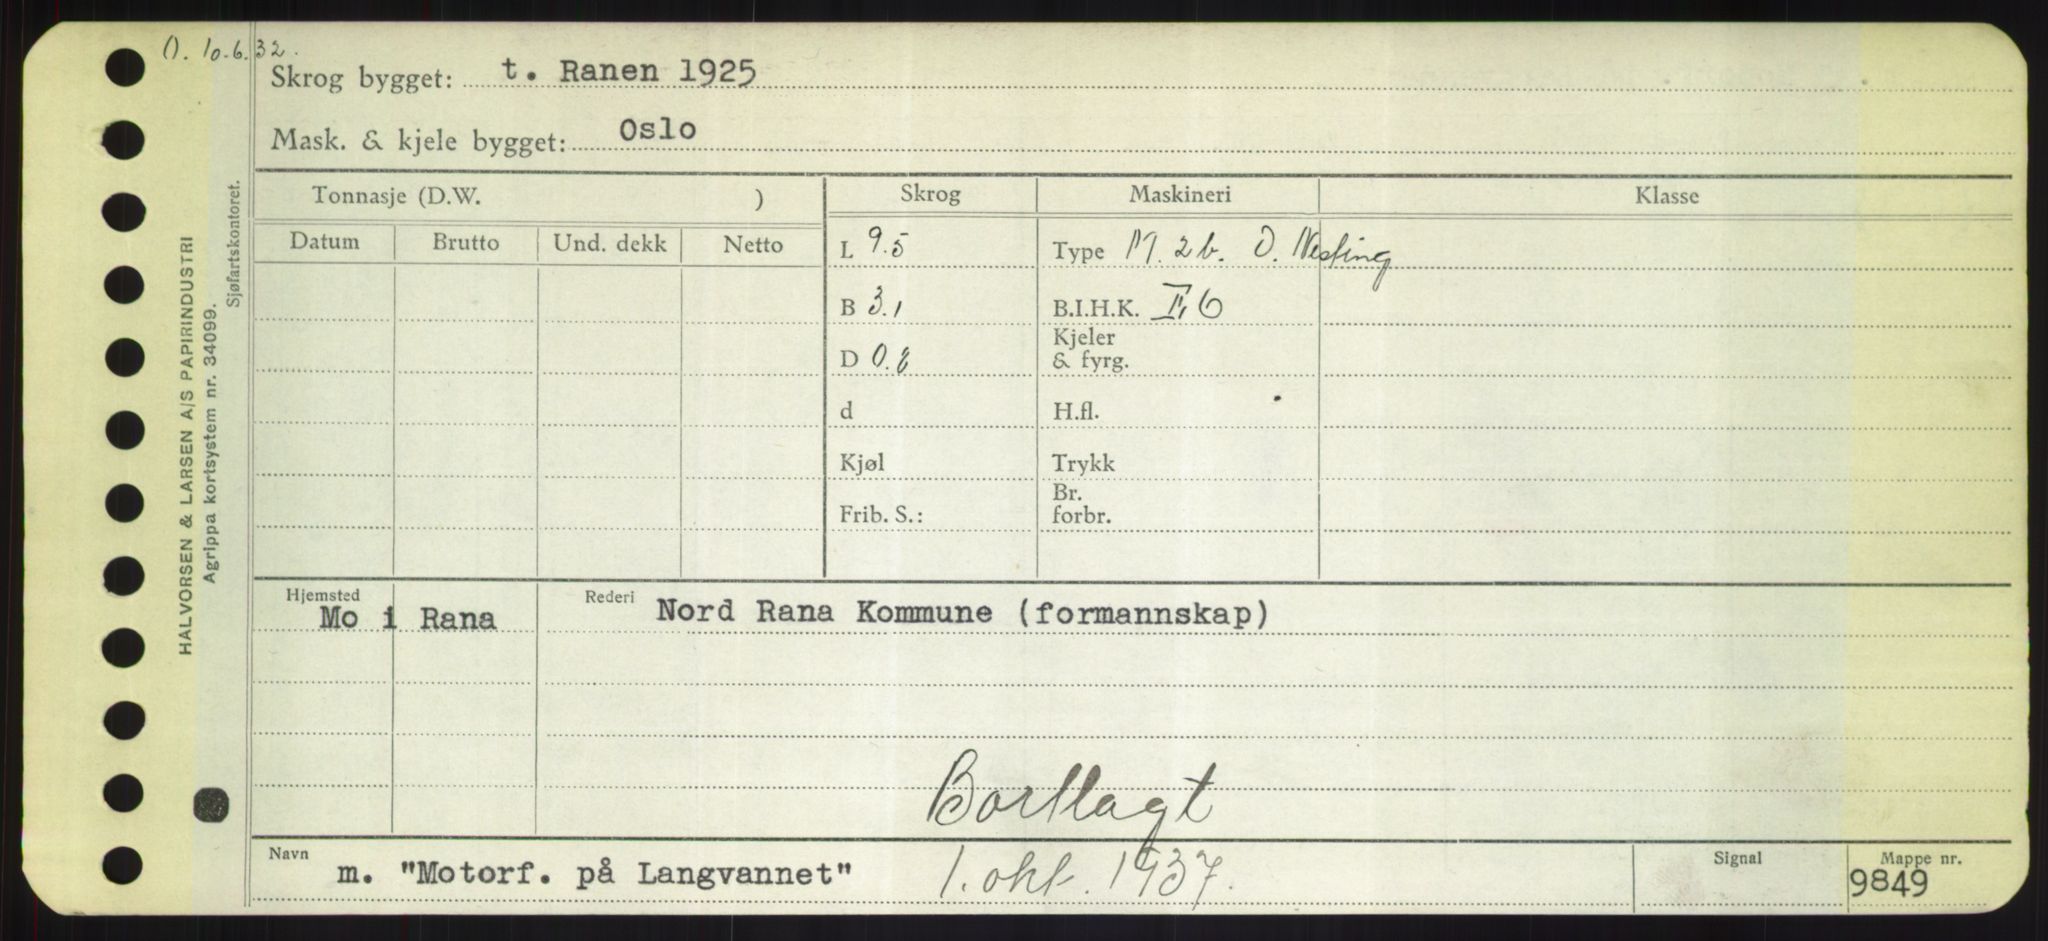 O. 10.6.32.
Skrog bygget: t. Ranen 1925
Mask. & kjele bygget: Oslo
HALVORSEN & LARSEN A/S PAPIRINDUSTRI
Agrippa kortsystem nr. 34099.
Sjøfartskontoret.
Tonnasje (D.W. ) Skrog Maskineri Klasse
Datum Brutto Und. dekk Netto
L 9.5 Type M. 2 b. O. Nesting
B 3.1 B.I.H.K. II, 6
Kjeler
D 0.8 & fyrg.
d H.fl.
Kjøl Trykk
Br.
Frib. S.: forbr.
Hjemsted Mo i Rana Rederi Nord Rana Kommune (formannskap)
Bortlagt
Navn m. "Motorf. på Langvannet" 1. okt. 1937. Signal Mappe nr. 9849